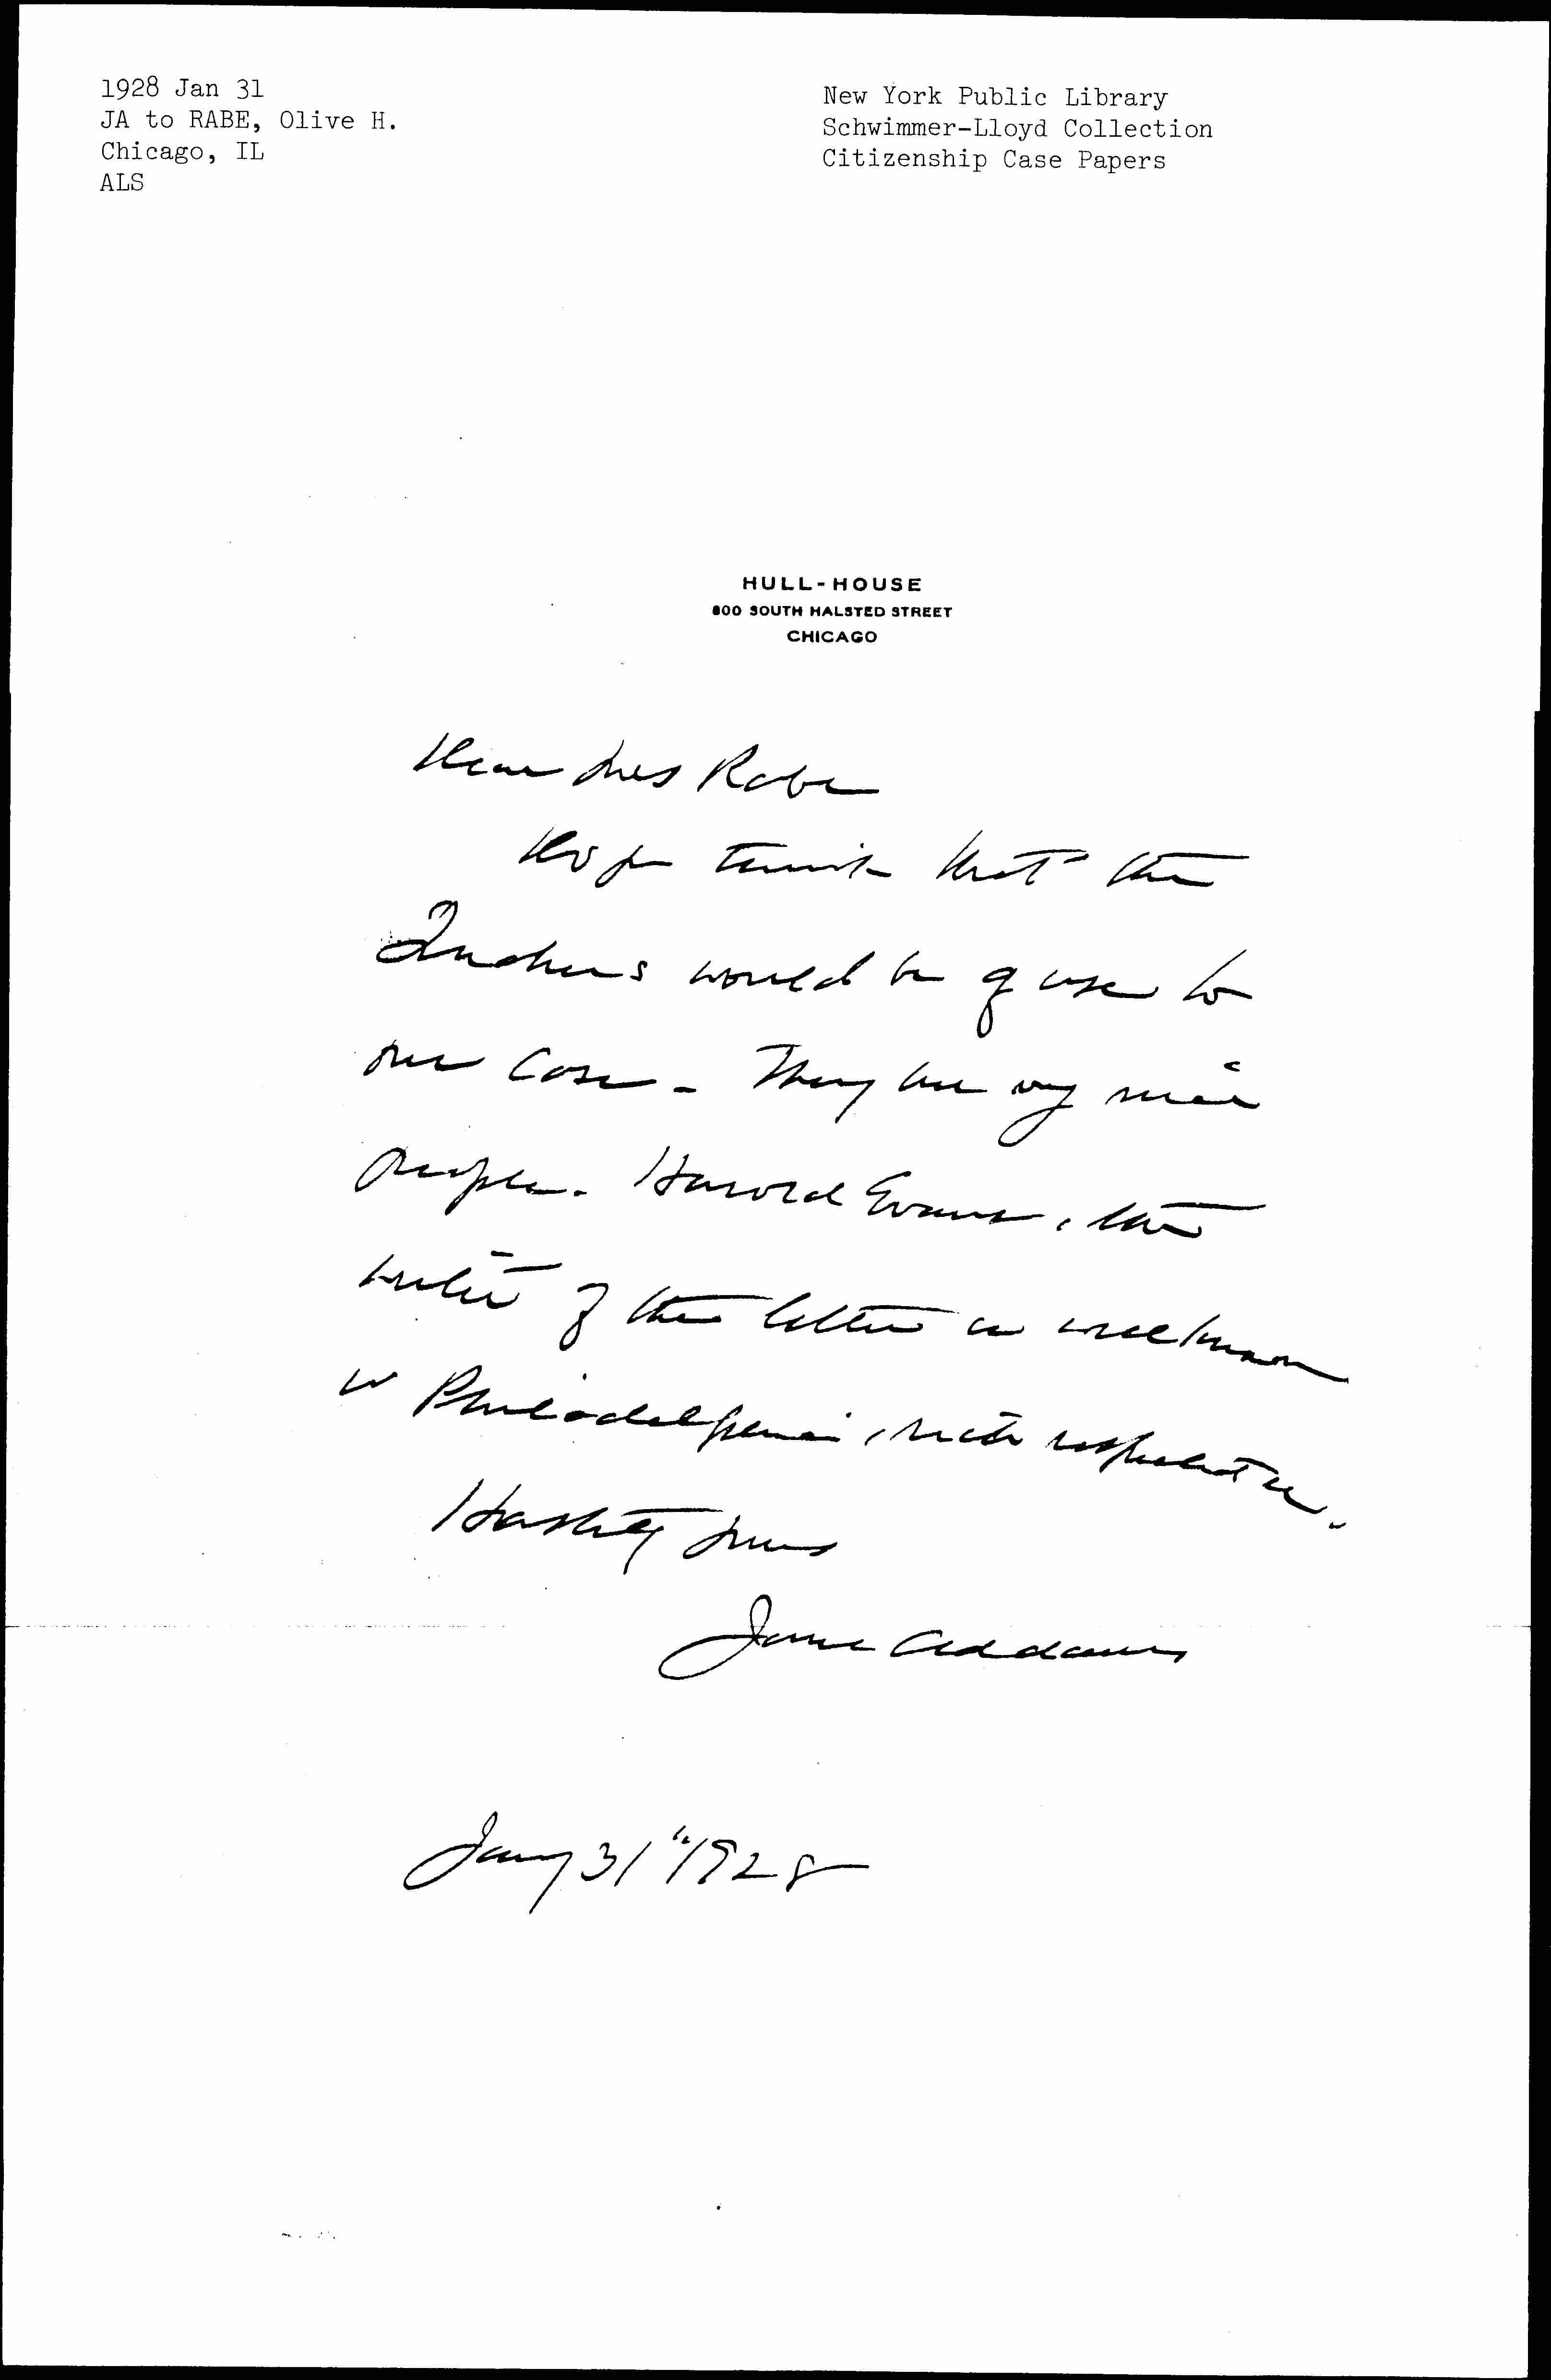 1928 Jan 31
JA to RABE, Olive H.
Chicago, IL
ALS
New York Public Library
Schwimmer-Lloyd Collection
Citizenship Case Papers
HULL-HOUSE
800 SOUTH HALSTED STREET
CHICAGO
Dear Mrs Rabe
Do you think that the
Quakers would be of use to
our case - They are very nice
people. Harold Evans, the
writer of the letter is well known
in Philadelphia, rich respected &c.
Hastily yours
Jane Addams
Jany 31" 1928